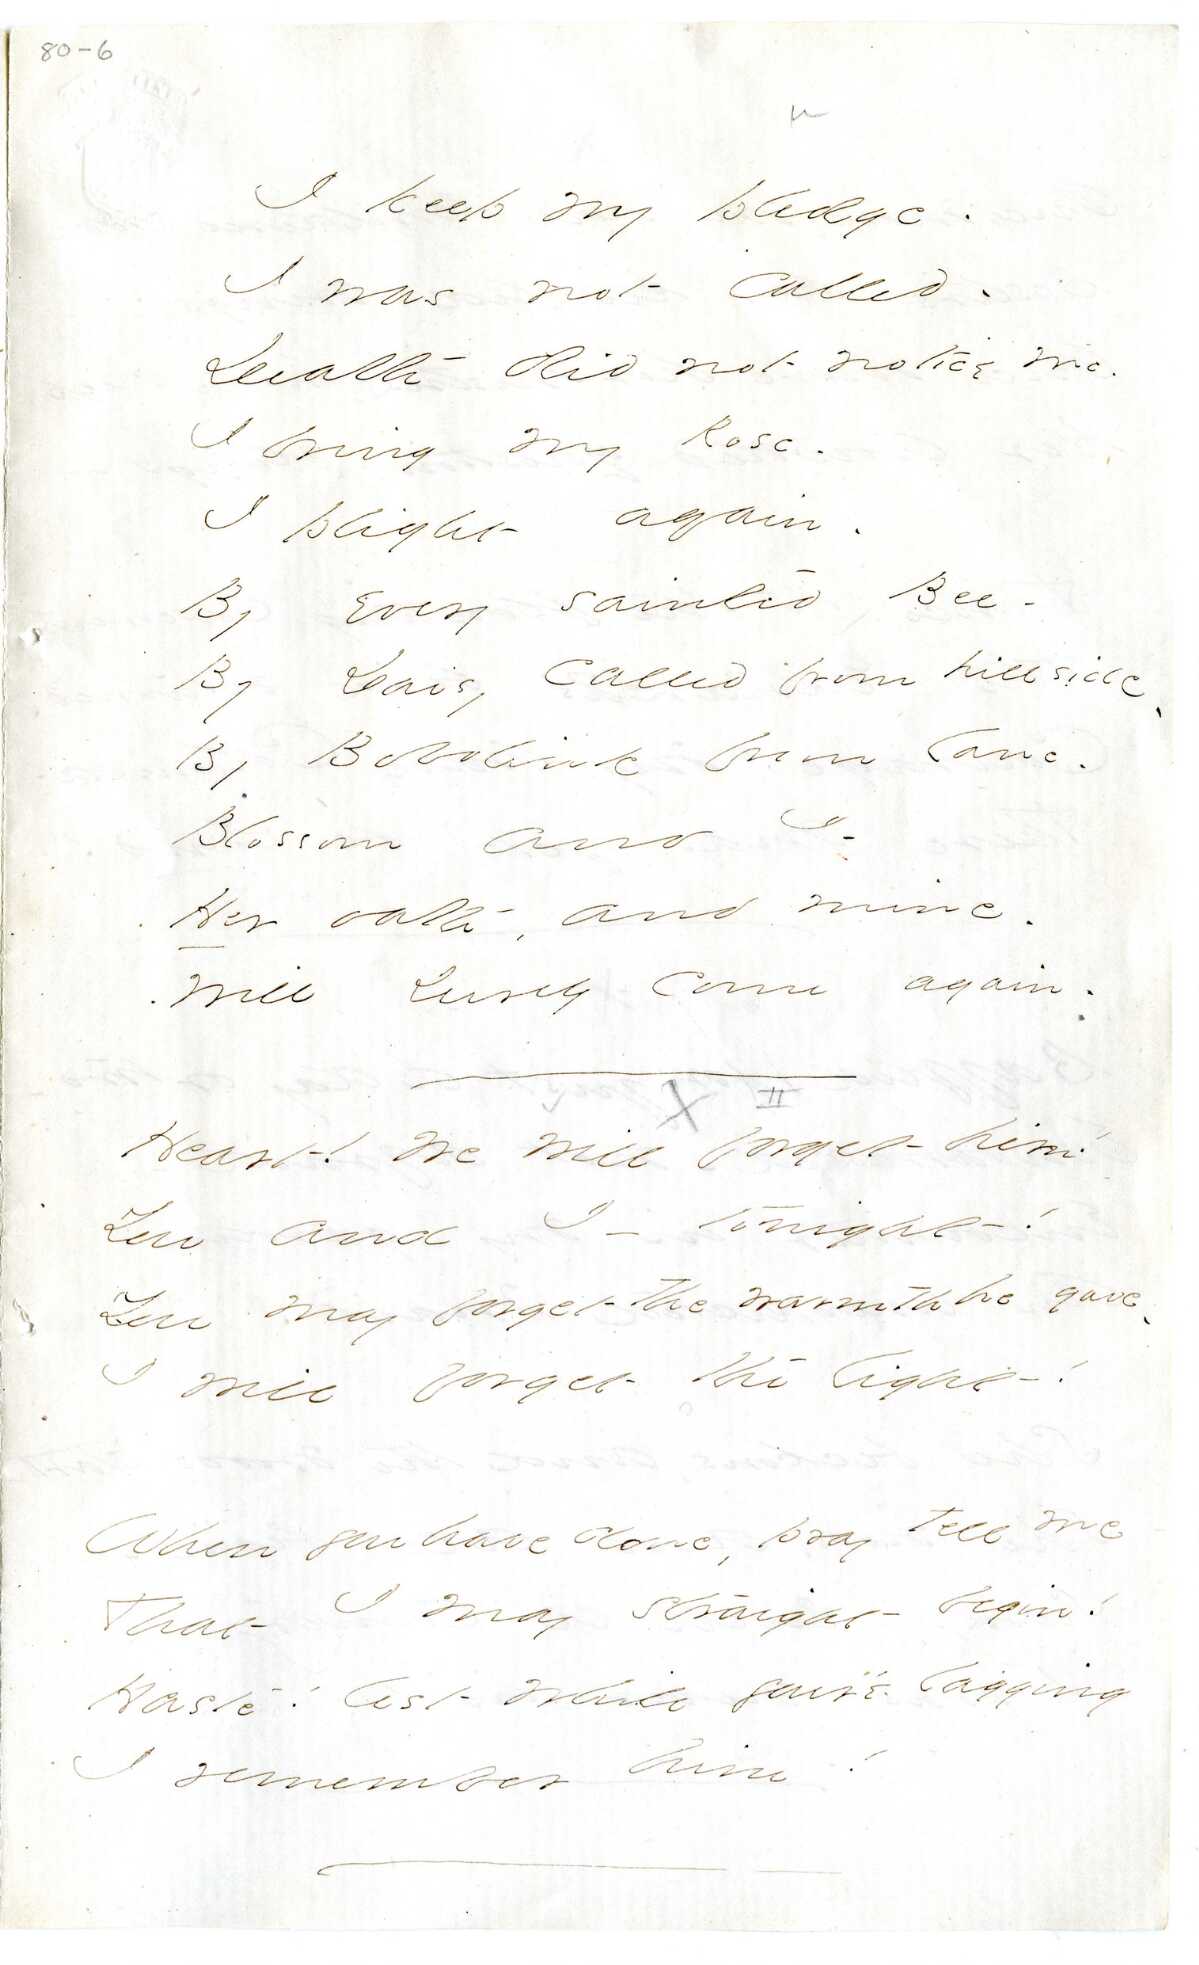 80-6
I keep my pledge.
I was not called.
Death did not notice me.
I bring my Rose.
I plight again.
By every sainted Bee -
By Daisy called from hillside,
By Bobolink from lane.
Blossom and I -
Her oath, and mine.
Will surely come again.
X II
Heart! We will forget him!
You and I - tonight!
You may forget the warmth he gave,
I will forget the light!
When you have done, pray tell me
That I may straight begin!
Haste! lest while you're lagging
I remember him!